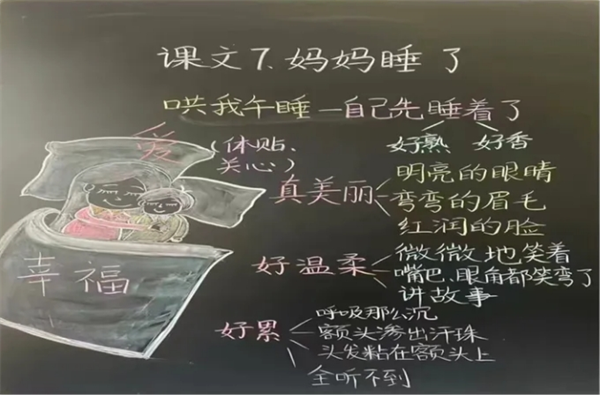 课文7.妈妈睡了
哄我午睡—自己先睡着了
爱
(体贴、
关心)
好熟 好香
真美丽
明亮的眼睛
弯弯的眉毛
红润的脸
好温柔
微微地笑着
嘴巴、眼角都笑弯了
讲故事
好累
呼吸那么沉
额头渗出汗珠
头发粘在额头上
全听不到
幸福